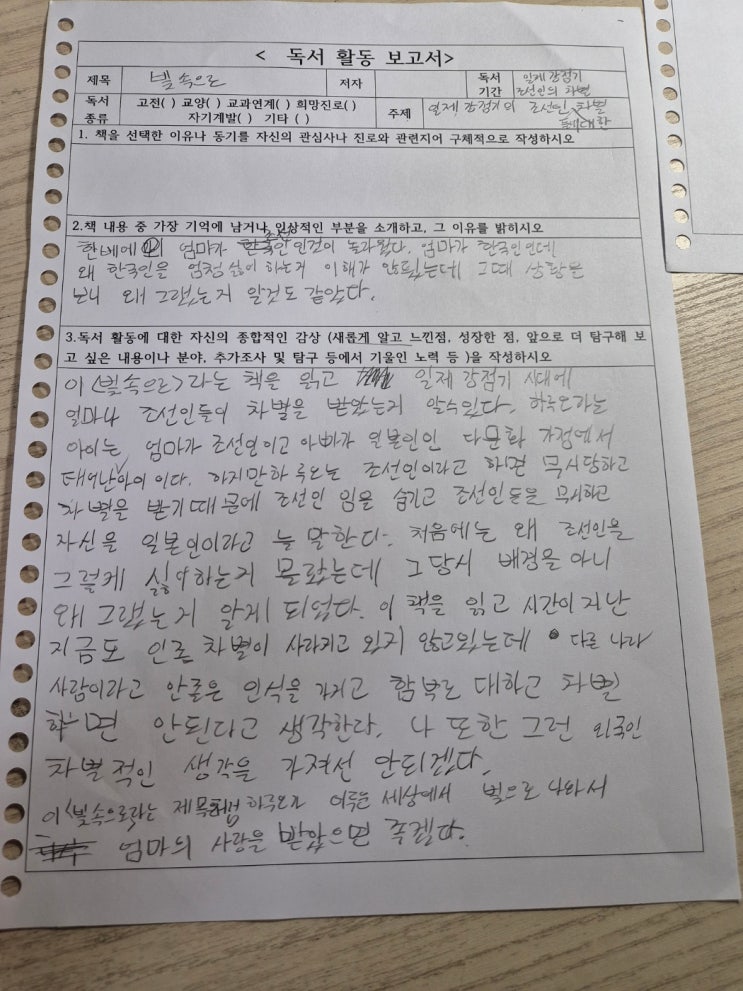 < 독서 활동 보고서>
제목 빛 속으로 저자 독서 기간 일제 강점기 조선인의 차별
독서 종류 고전( ) 교양( ) 교과연계( ) 희망진로( ) 자기계발( ) 기타 ( ) 주제 일제 강점기의 조선인 차별에 대한
1. 책을 선택한 이유나 동기를 자신의 관심사나 진로와 관련지어 구체적으로 작성하시오
2.책 내용 중 가장 기억에 남거나 인상적인 부분을 소개하고, 그 이유를 밝히시오
한베에의 엄마가 조선인인것이 놀라웠다. 엄마가 한국인인데
왜 한국인을 엄청 싫어 하는지 이해가 안됬는데 그때 상황을
보니 왜 그랬는지 알것도 같았다.
3.독서 활동에 대한 자신의 종합적인 감상 (새롭게 알고 느낀점, 성장한 점, 앞으로 더 탐구해 보
고 싶은 내용이나 분야, 추가조사 및 탐구 등에서 기울인 노력 등 )을 작성하시오
이 <빛속으로>라는 책을 읽고 일제 강점기 시대에
얼마나 조선인들이 차별을 받았는지 알수있다. 하루오라는
아이는 엄마가 조선인이고 아빠가 일본인인 다문화 가정에서
태어난 아이 이다. 하지만 하루오는 조선인이라고 하면 무시당하고
차별을 받기때문에 조선인 임을 숨기고 조선인들을 무시하고
자신을 일본인이라고 늘 말한다. 처음에는 왜 조선인을
그렇케 싫어하는지 몰랐는데 그 당시 배경을 아니
왜 그랬는지 알게 되었다. 이 책을 읽고 시간이 지난
지금도 인종 차별이 사라지고 있지 않고있는데 다른 나라
사람이라고 안좋은 인식을 가지고 함부로 대하고 차별
하면 안된다고 생각한다. 나 또한 그런 외국인
차별적인 생각을 가져선 안되겠다.
이 <빛속으로>라는 제목처럼 하루오가 어두운 세상에서 빛으로 나와서
엄마의 사랑을 받았으면 좋켔다.